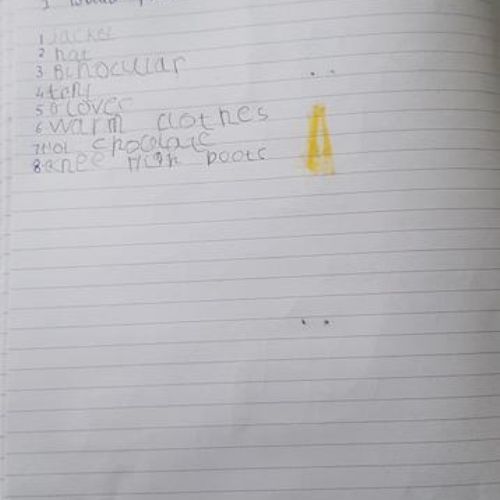 1 jacket
2 hat
3 Binocular
4 tent
5 Glover
6 warm clothes
7 Hot chocolate
8 knee High boots